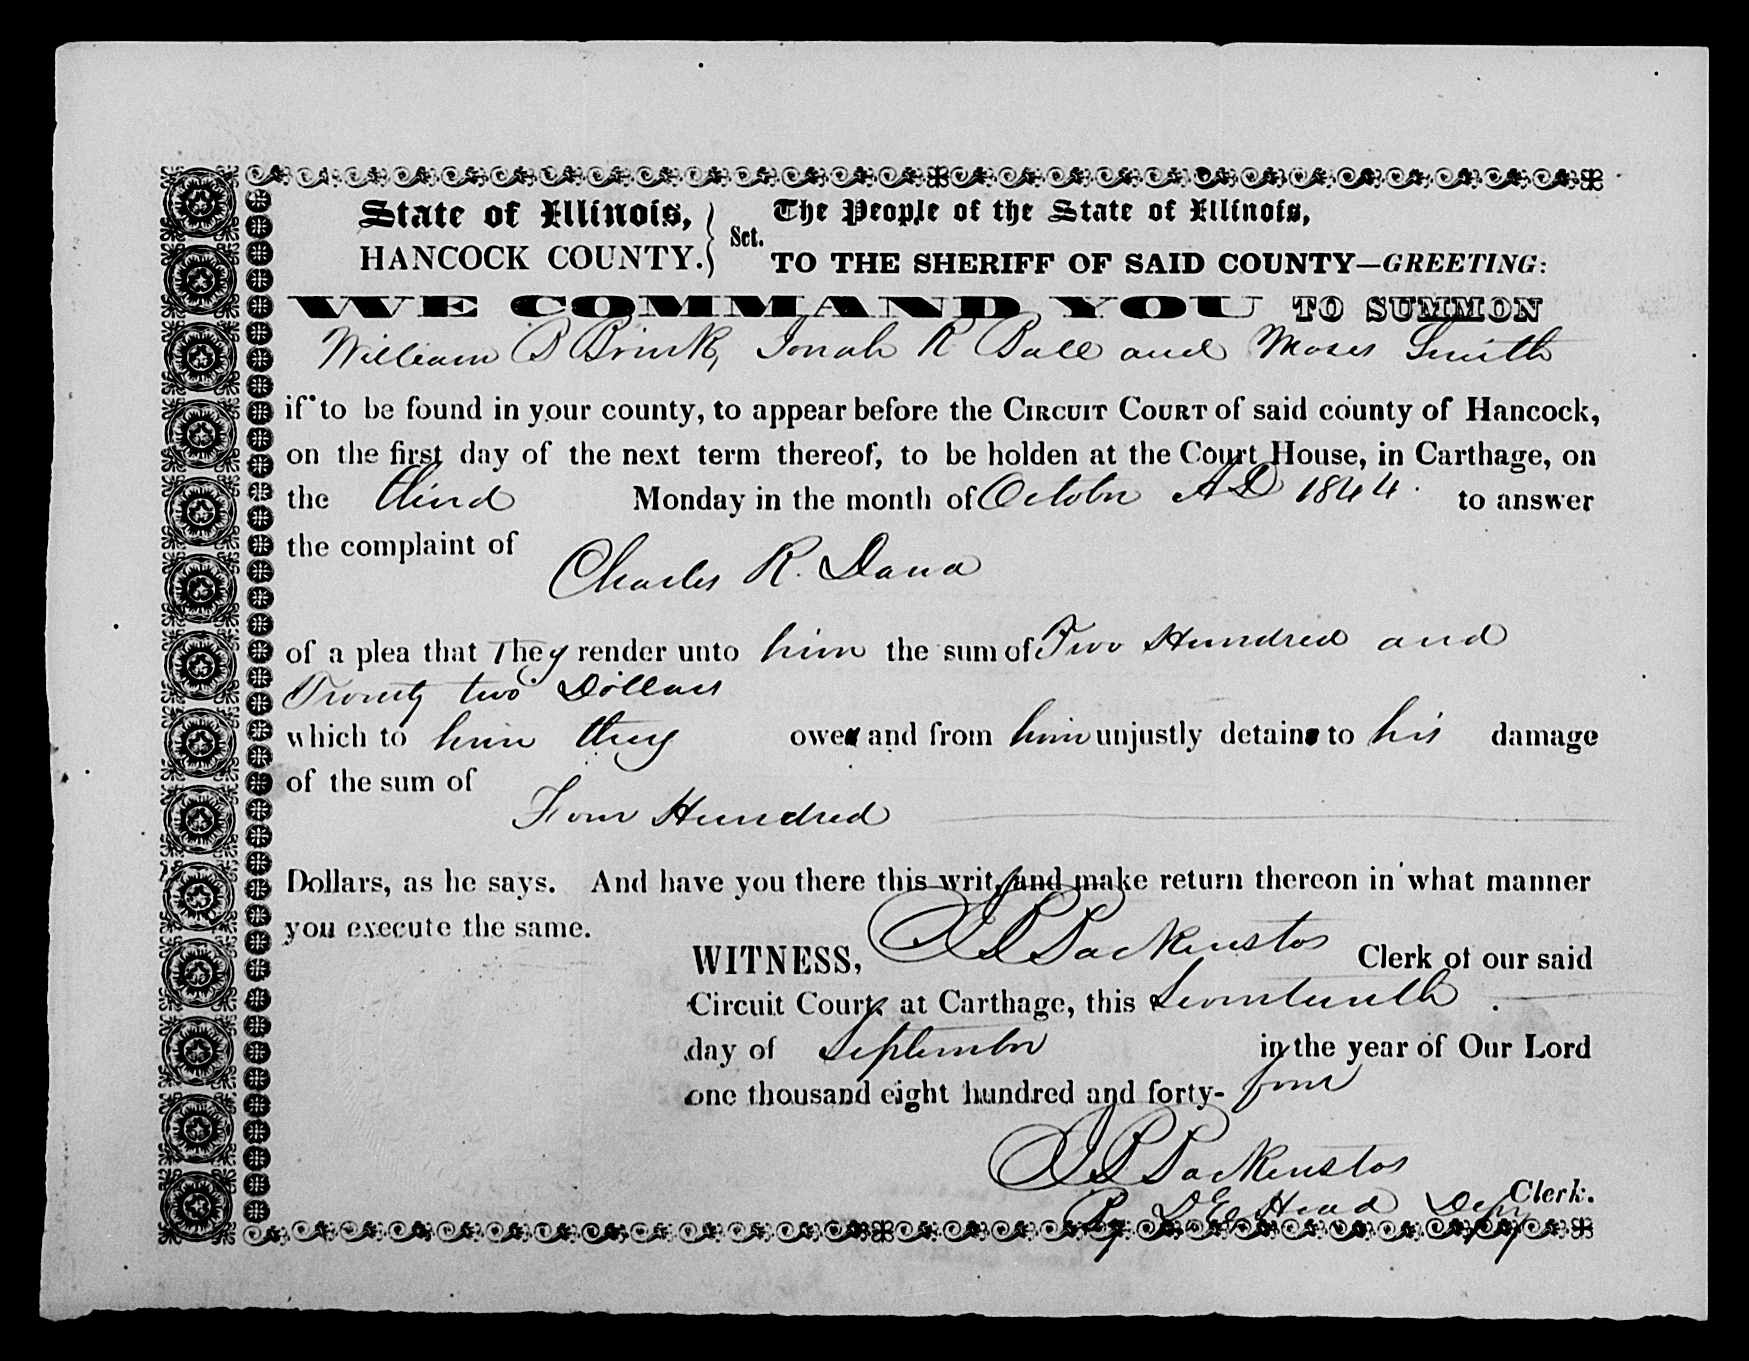 State of Illinois,
HANCOCK COUNTY.
Sct.
The People of the State of Illinois,
TO THE SHERIFF OF SAID COUNTY—GREETING:
WE COMMAND YOU TO SUMMON
William B Brink, Jonah R Ball and Moses Smith
if to be found in your county, to appear before the CIRCUIT COURT of said county of Hancock,
on the first day of the next term thereof, to be holden at the Court House, in Carthage, on
the third Monday in the month of October AD 1844. to answer
the complaint of
Charles R. Dana
of a plea that They render unto him the sum of Two Hundred and
Twenty two Dollars
which to him they owe and from him unjustly detain to his damage
of the sum of
Four Hundred
Dollars, as he says. And have you there this writ, and make return thereon in what manner
you execute the same.
WITNESS, J B Backenstos Clerk of our said
Circuit Court, at Carthage, this Seventeenth
day of September in the year of Our Lord
one thousand eight hundred and forty-four
J B Backenstos
Clerk.
By D E Head Depy